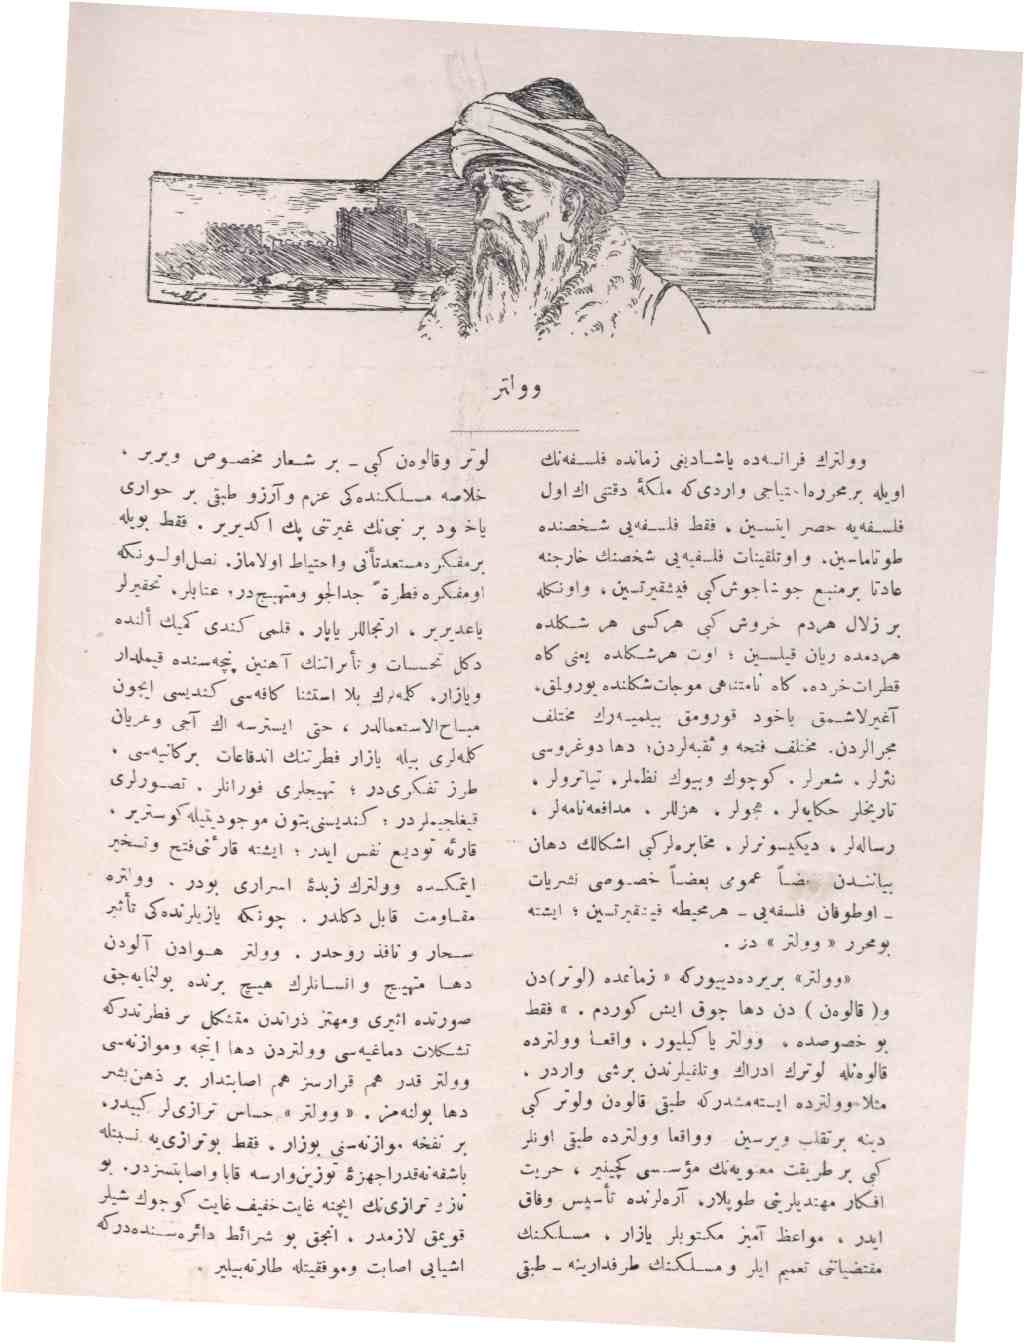 وولتر
وولترك فرانسه‌ده ياشاديغى زمانده فلسفه‌نك
اويله بر محرره احتياجى واردى كه ملكهٔ دقتنى اك اول
فلسفه‌يه حصر ايتسين . فقط فلسفه‌يى شخصنده
طوتاماسين. و او تلقينات فلسفيه‌يى شخصنك خارجنه
عادتا بر منبع جوشاجوش كبى فيشقيرتسين ، واونكله
بر زلال هردم خروش كبى هركسى هر شكلده
هردمده ريان قيلسين ؛ اوت هرشكلده يعنى كاه
قطرات خرده، كاه نامتناهى موجات شكلنده يورولمق،
آغيرلاشمق ياخود قورومق بيلميه‌رك مختلف
مجرالردن. مختلف فتحه و ثقبه‌لردن؛ دها دوغروسى
نثرلر . شعرلر . كوچوك وبيوك نظملر. تياترولر .
تاريخلر حكايه‌لر . هجولر . هزللر . مدافعه‌نامه‌لر .
رساله‌لر . ديكسيونرلر . مخابره‌لر كبى اشكالك دهان
بياننـدن بعضاً عمومى بعضاً خصوصى نشريات
ـ او طوفان فلسفه‌يى ـ هرمحيطه فيشقيرتسين ؛ ايشته
بومحرر « وولتر » در .
«وولتر» بريرده‌دييوركه « زمانمده (لوتر)دن
و( قالوه‌ن ) دن دها چوق ايش كوردم . » فقط
بو خصوصده ، وولتر ياكيليور . واقعا وولترده
قالوه‌نله لوترك ادراك وتلقيلرندن برشى واردر .
مثلا وولترده ايسته‌مشدركه طبقى قالوه‌ن ولوتر كبى
دينه برتقلب ويرسين وواقعا وولترده طبقى اونلر
كبى بر طريقت معنويه‌نك مؤسسى كچينير ، حريت
افكار مهنديلرينى طوپلار. آره‌لرنده تأسيس وفاق
ايدر . مواعظ آميز مكتوبلر يازار . مسلكنك
مقتضياتنى تعميم ايلر و مسلكنك طرفدارينه ـ طبقى
لوتر وقالوه‌ن كبى ـ بر شعار مخصوص ويرير .
خلاصه مسلكنده‌كى عزم وآرزو طبقى بر حوارى
ياخود بر نبى‌نك غيرتنى پك اكديرير . فقط بويله
برمفكره مستعد تأنى واحتياط اولاماز. نصل اولسونكه
اومفكره فطرةً جدالجو ومتهيجدر؛ عتابلر. تحقيرلر
ياغديرير . ارتجاللر ياپار . قلمى كندى كمينك ألنده
دكل تحسسات و تأثراتنك آهنين پنچه‌سنده قيملدار
ويازار. كلمه‌لرك بلا استثنا كافه‌سى كنديسى ايچون
مباح‌الاستعمالدر ، حتى ايسترسه اك آجى وعريان
كلمه‌لرى بيله يازار فطرتنك اندفاعات بركانيه‌سى .
طرز تفكرى‌در ؛ تهيجلرى فورانلر . تصورلرى
قيغلجيملردر ؛ كنديسنى بتون موجوديتيله كوسترير .
قارئه توديع نفس ايدر ؛ ايشته قارئنى فتح وتسخير
ايتمكده وولترك زبدهٔ اسرارى بودر . وولتره
مقاومت قابل دكلدر . چونكه يازيلرنده‌كى تأثير
سحار و نافذ روحدر . وولتر هوادن آلودن
دها متهيج و انسانلرك هيچ برنده بولنمايه‌جق
صورتده اثيرى ومهتز ذراتدن متشكل بر فطرتدركه
تشكلات دماغيه‌سى وولتردن دها اينجه وموازنه‌سى
وولتر قدر هم قرارسز هم اصابتدار بر ذهن‌بشر
دها بولنه‌مز . « وولتر » حساس ترازى‌لر كبيدر،
بر نفخه موازنه‌سنى بوزار . فقط بوترازى‌يه نسبتله
باشقه‌نه‌قدر اجهزهٔ توزين‌وارسه قابا واصابتسزدر. بو
نازك ترازى‌نك ايچنه غايت خفيف غايت كوچوك شيلر
قويمق لازمدر . انجق بو شرائط دائره‌سنده‌دركه
اشيايى اصابت وموفقيتله طارته‌بيلير .